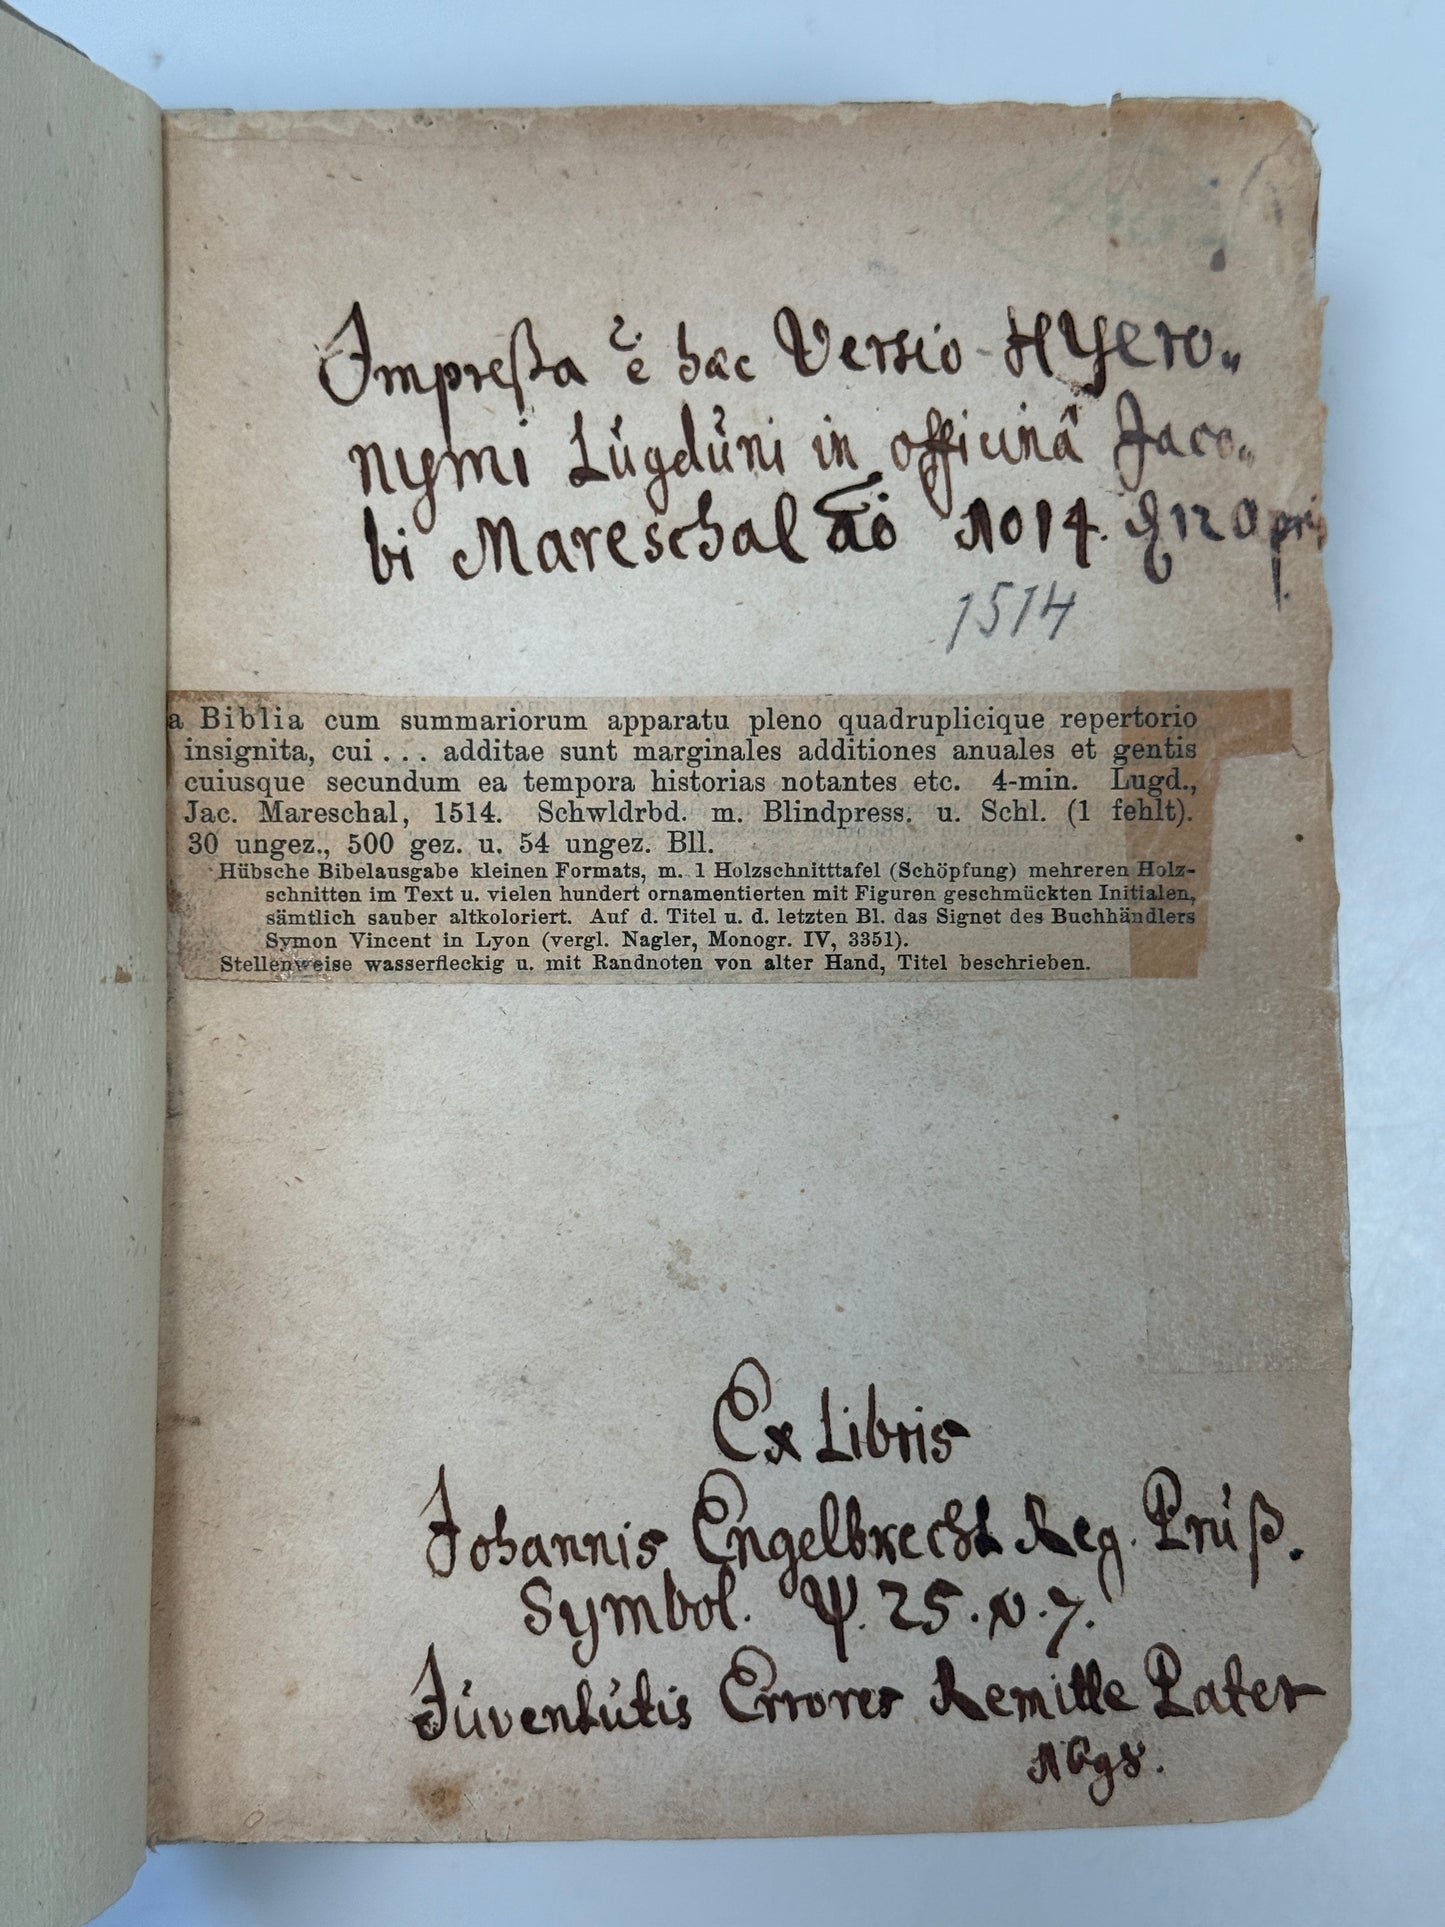 Impreßa ẽ hæc Versio Hyero„
nymi Lúgdúni in officinâ Jaco„
bi Mareschal Aõ 1014. d 12 Apri
l.
1514
a Biblia cum summariorum apparatu pleno quadruplicique repertorio
insignita, cui . . . additae sunt marginales additiones anuales et gentis
cuiusque secundum ea tempora historias notantes etc. 4-min. Lugd.,
Jac. Mareschal, 1514. Schwldrbd. m. Blindpress. u. Schl. (1 fehlt).
30 ungez., 500 gez. u. 54 ungez. Bll.
Hübsche Bibelausgabe kleinen Formats, m. 1 Holzschnitttafel (Schöpfung) mehreren Holz-
schnitten im Text u. vielen hundert ornamentierten mit Figuren geschmückten Initialen,
sämtlich sauber altkoloriert. Auf d. Titel u. d. letzten Bl. das Signet des Buchhändlers
Symon Vincent in Lyon (vergl. Nagler, Monogr. IV, 3351).
Stellenweise wasserfleckig u. mit Randnoten von alter Hand, Titel beschrieben.
Ex Libris
Johannis Engelbrecht Reg. Prúß.
Symbol. Ψ. 25. v. 7.
Júventútis Errores Remitte Pater